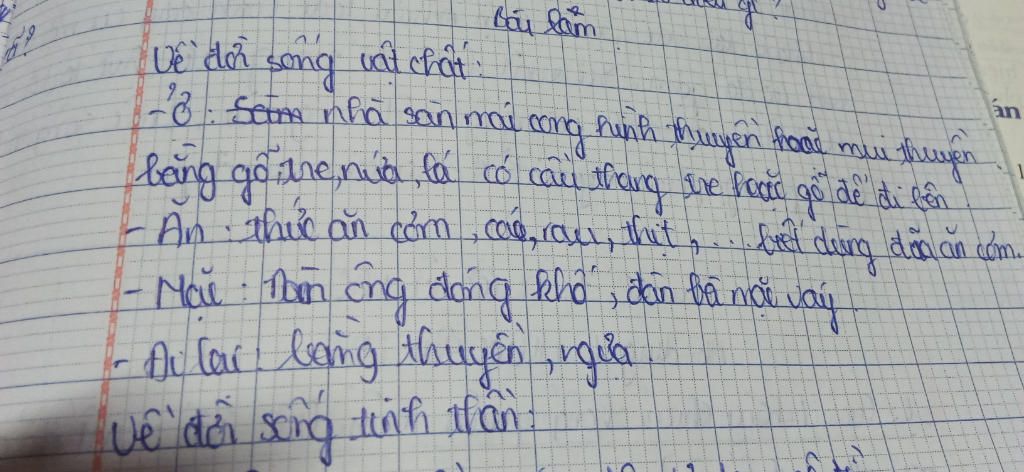 Về đời sống vật chất:
- Ở: nhà sàn mái cong hình thuyền hoặc mui thuyền
bằng gỗ, tre, nứa, lá có cầu thang tre hoặc gỗ để đi lên.
- Ăn: thức ăn cơm, cá, rau, thịt, ... biết dùng đũa ăn cơm.
- Mặc: đàn ông đóng khố, đàn bà mặc váy
- Đi lại: bằng thuyền, ngựa.
Về đời sống tinh thần: